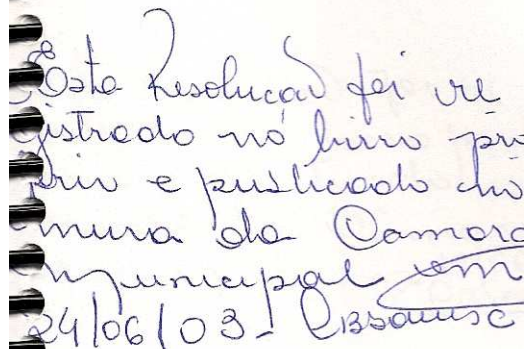 Esta Resolução foi re
gistrado no livro pró
prio e publicado no
mura da Camara
Municipal em
24/06/03 -